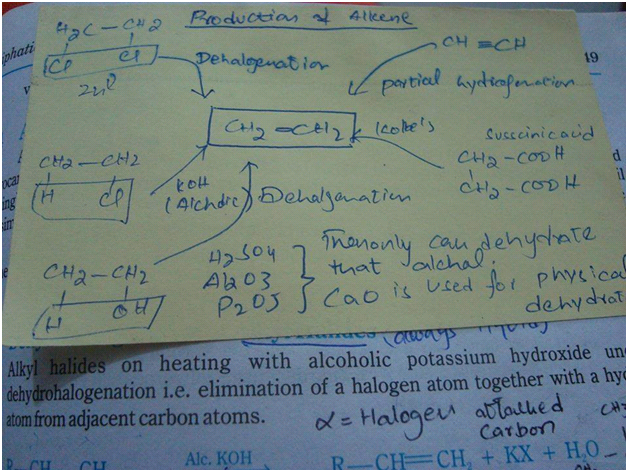 Production of Alkene
H2C — CH2
Cl Cl
Zn
Dehalogenation
CH ≡ CH
partial hydrogenation
CH2 = CH2
Kolbe's
Susccinic acid
CH2 - COOH
CH2 - COOH
CH2 — CH2
H Cl
KOH
(Alcholic)
Dehalgenation
CH2 — CH2
H OH
H2SO4
Al2O3
P2O5
can dehydrate
that alchal.
CaO is used for physical
dehydrat
49
Alkyl halides on heating with alcoholic potassium hydroxide un
dehydrohalogenation i.e. elimination of a halogen atom together with a hy
atom from adjacent carbon atoms.
α = Halogen attached
carbon
Alc. KOH
R—CH=CH2 + KX + H2O